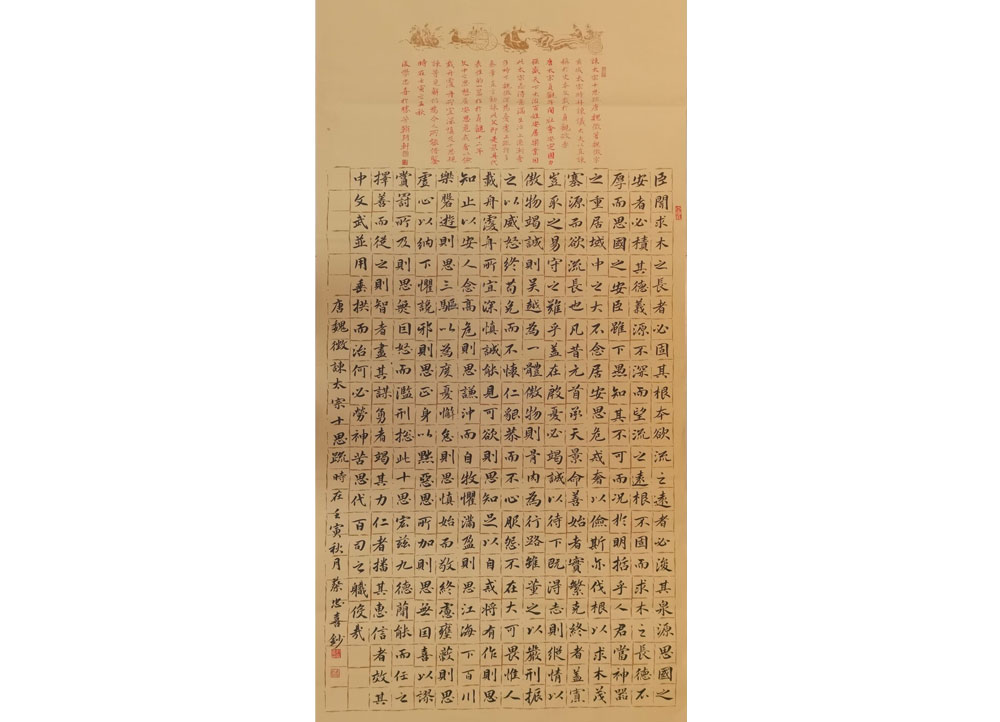 諫太宗十思疏唐魏徵著魏徵字
玄成太宗時拜諫議大夫以直諫
唐太宗貞觀年間社會安定國力
強盛天下太平百姓安居樂業因
此太宗志得意滿生活上
時在壬寅之孟秋
臣聞求木之長者必固其根本欲流之遠者必浚其泉源思國之
安者必積其德義源不深而望流之遠根不固而求木之長德不
厚而思國之安臣雖下愚知其不可而況於明哲乎人君當神器
之重居域中之大不念居安思危戒奢以儉斯亦伐根以求木茂
塞源而欲流長也凡昔元首承天景命善始者實繁克終者蓋寡
豈取之易守之難乎蓋在殷憂必竭誠以待下既得志則縱情以
傲物竭誠則吳越為一體傲物則骨肉為行路雖董之以嚴刑振
之以威怒終苟免而不懷仁貌恭而不心服怨不在大可畏惟人
載舟覆舟所宜深慎誠能見可欲則思知足以自戒將有作則思
知止以安人念高危則思謙沖而自牧懼滿盈則思江海下百川
樂盤遊則思三驅以為度憂懈怠則思慎始而敬終慮壅蔽則思
虛心以納下懼讒邪則思正身以黜惡恩所加則思無因喜以謬
賞罰所及則思無因怒而濫刑總此十思宏茲九德簡能而任之
擇善而從之則智者盡其謀勇者竭其力仁者播其惠信者效其
中文武並用垂拱而治何必勞神苦思代百司之職役哉
唐魏徵諫太宗十思疏時在壬寅秋月蔡忠喜鈔